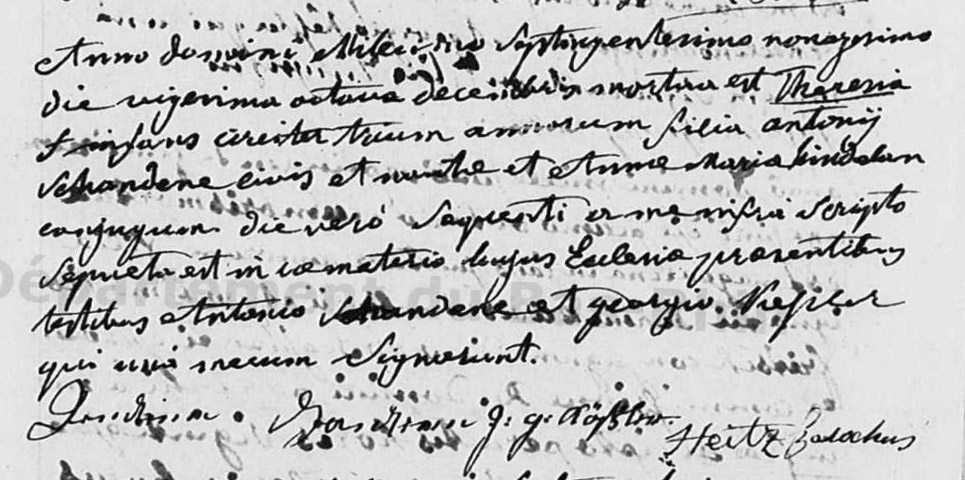 Anno domini Milesimo Septingentesimo nonagesimo
die vigesima octava decembris mortua est Theresia
infans circiter trium annorum filia antonij
Schandene civis et nauthe et Annae Maria
conjugum die vero sequenti a me infra scripto
sepulta est in coematerio hujus Eclesia praesentibus
testibus Antonio Schandene et georgio Kessler
qui una mecum Signarunt.
j. g. Kößler Heitz Parochus
Département du